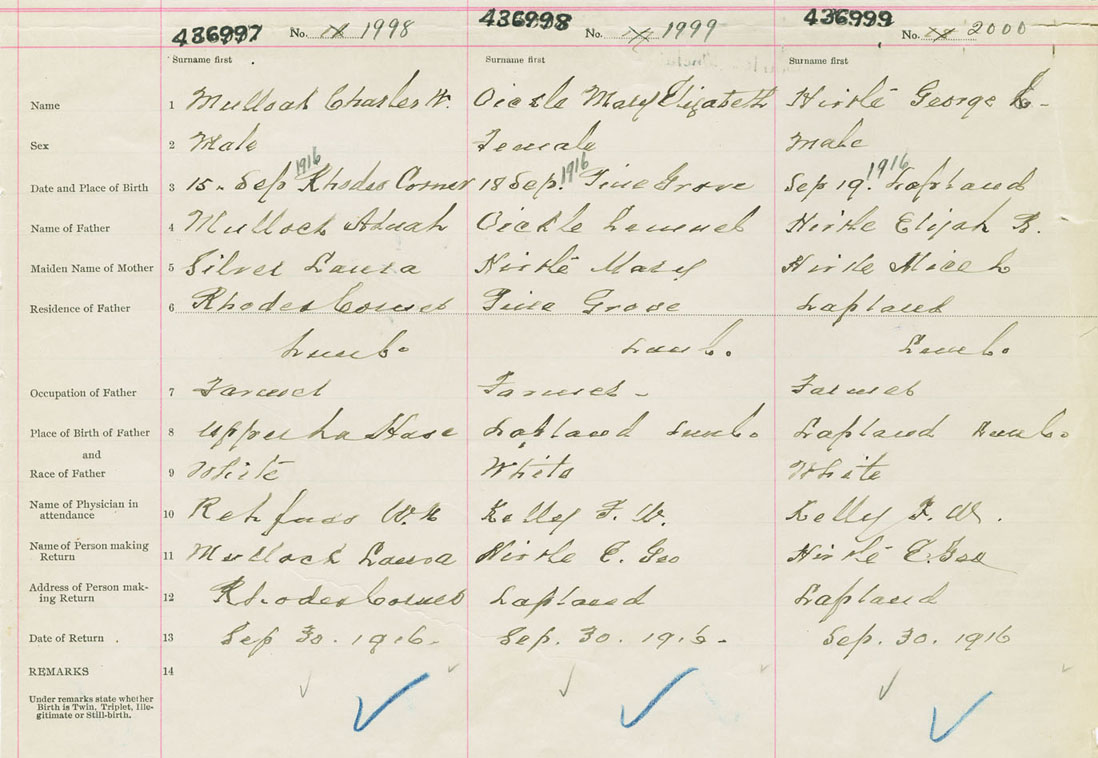 436997 No. 1998 436998 No. 1999 436999 No. 2000
Surname first Surname first Surname first
Name 1 Mulloch Charles W. Oickle Mary Elizabeth Hirtle George
Sex 2 Male Female Male
Date and Place of Birth 3 15 - Sep 1916 Rhodes Corner 18 Sep. 1916 Pine Grove Sep 19. 1916 Lapland
Name of Father 4 Mulloch Oickle Lemuel Hirtle Elijah R.
Maiden Name of Mother 5 Silver Laura Hirtle Mary Hirtle Alice L
Residence of Father 6 Rhodes Corner Pine Grove Lapland
Lunb. Lunb. Lunb.
Occupation of Father 7 Farmer Farmer - Farmer
Place of Birth of Father 8 Upper La Have Lapland Lunb. Lapland Lunb.
and
Race of Father 9 White White White
Name of Physician in
attendance 10 Rehfuss W. N Kelley F. W. Kelley F. W.
Name of Person making
Return 11 Mulloch Laura Hirtle E. Geo Hirtle E. Geo
Address of Person mak-
ing Return 12 Rhodes Corner Lapland Lapland
Date of Return . 13 Sep 30. 1916. Sep. 30. 1916. Sep. 30. 1916
REMARKS 14
Under remarks state whether
Birth is Twin, Triplet, Ille-
gitimate or Still-birth.